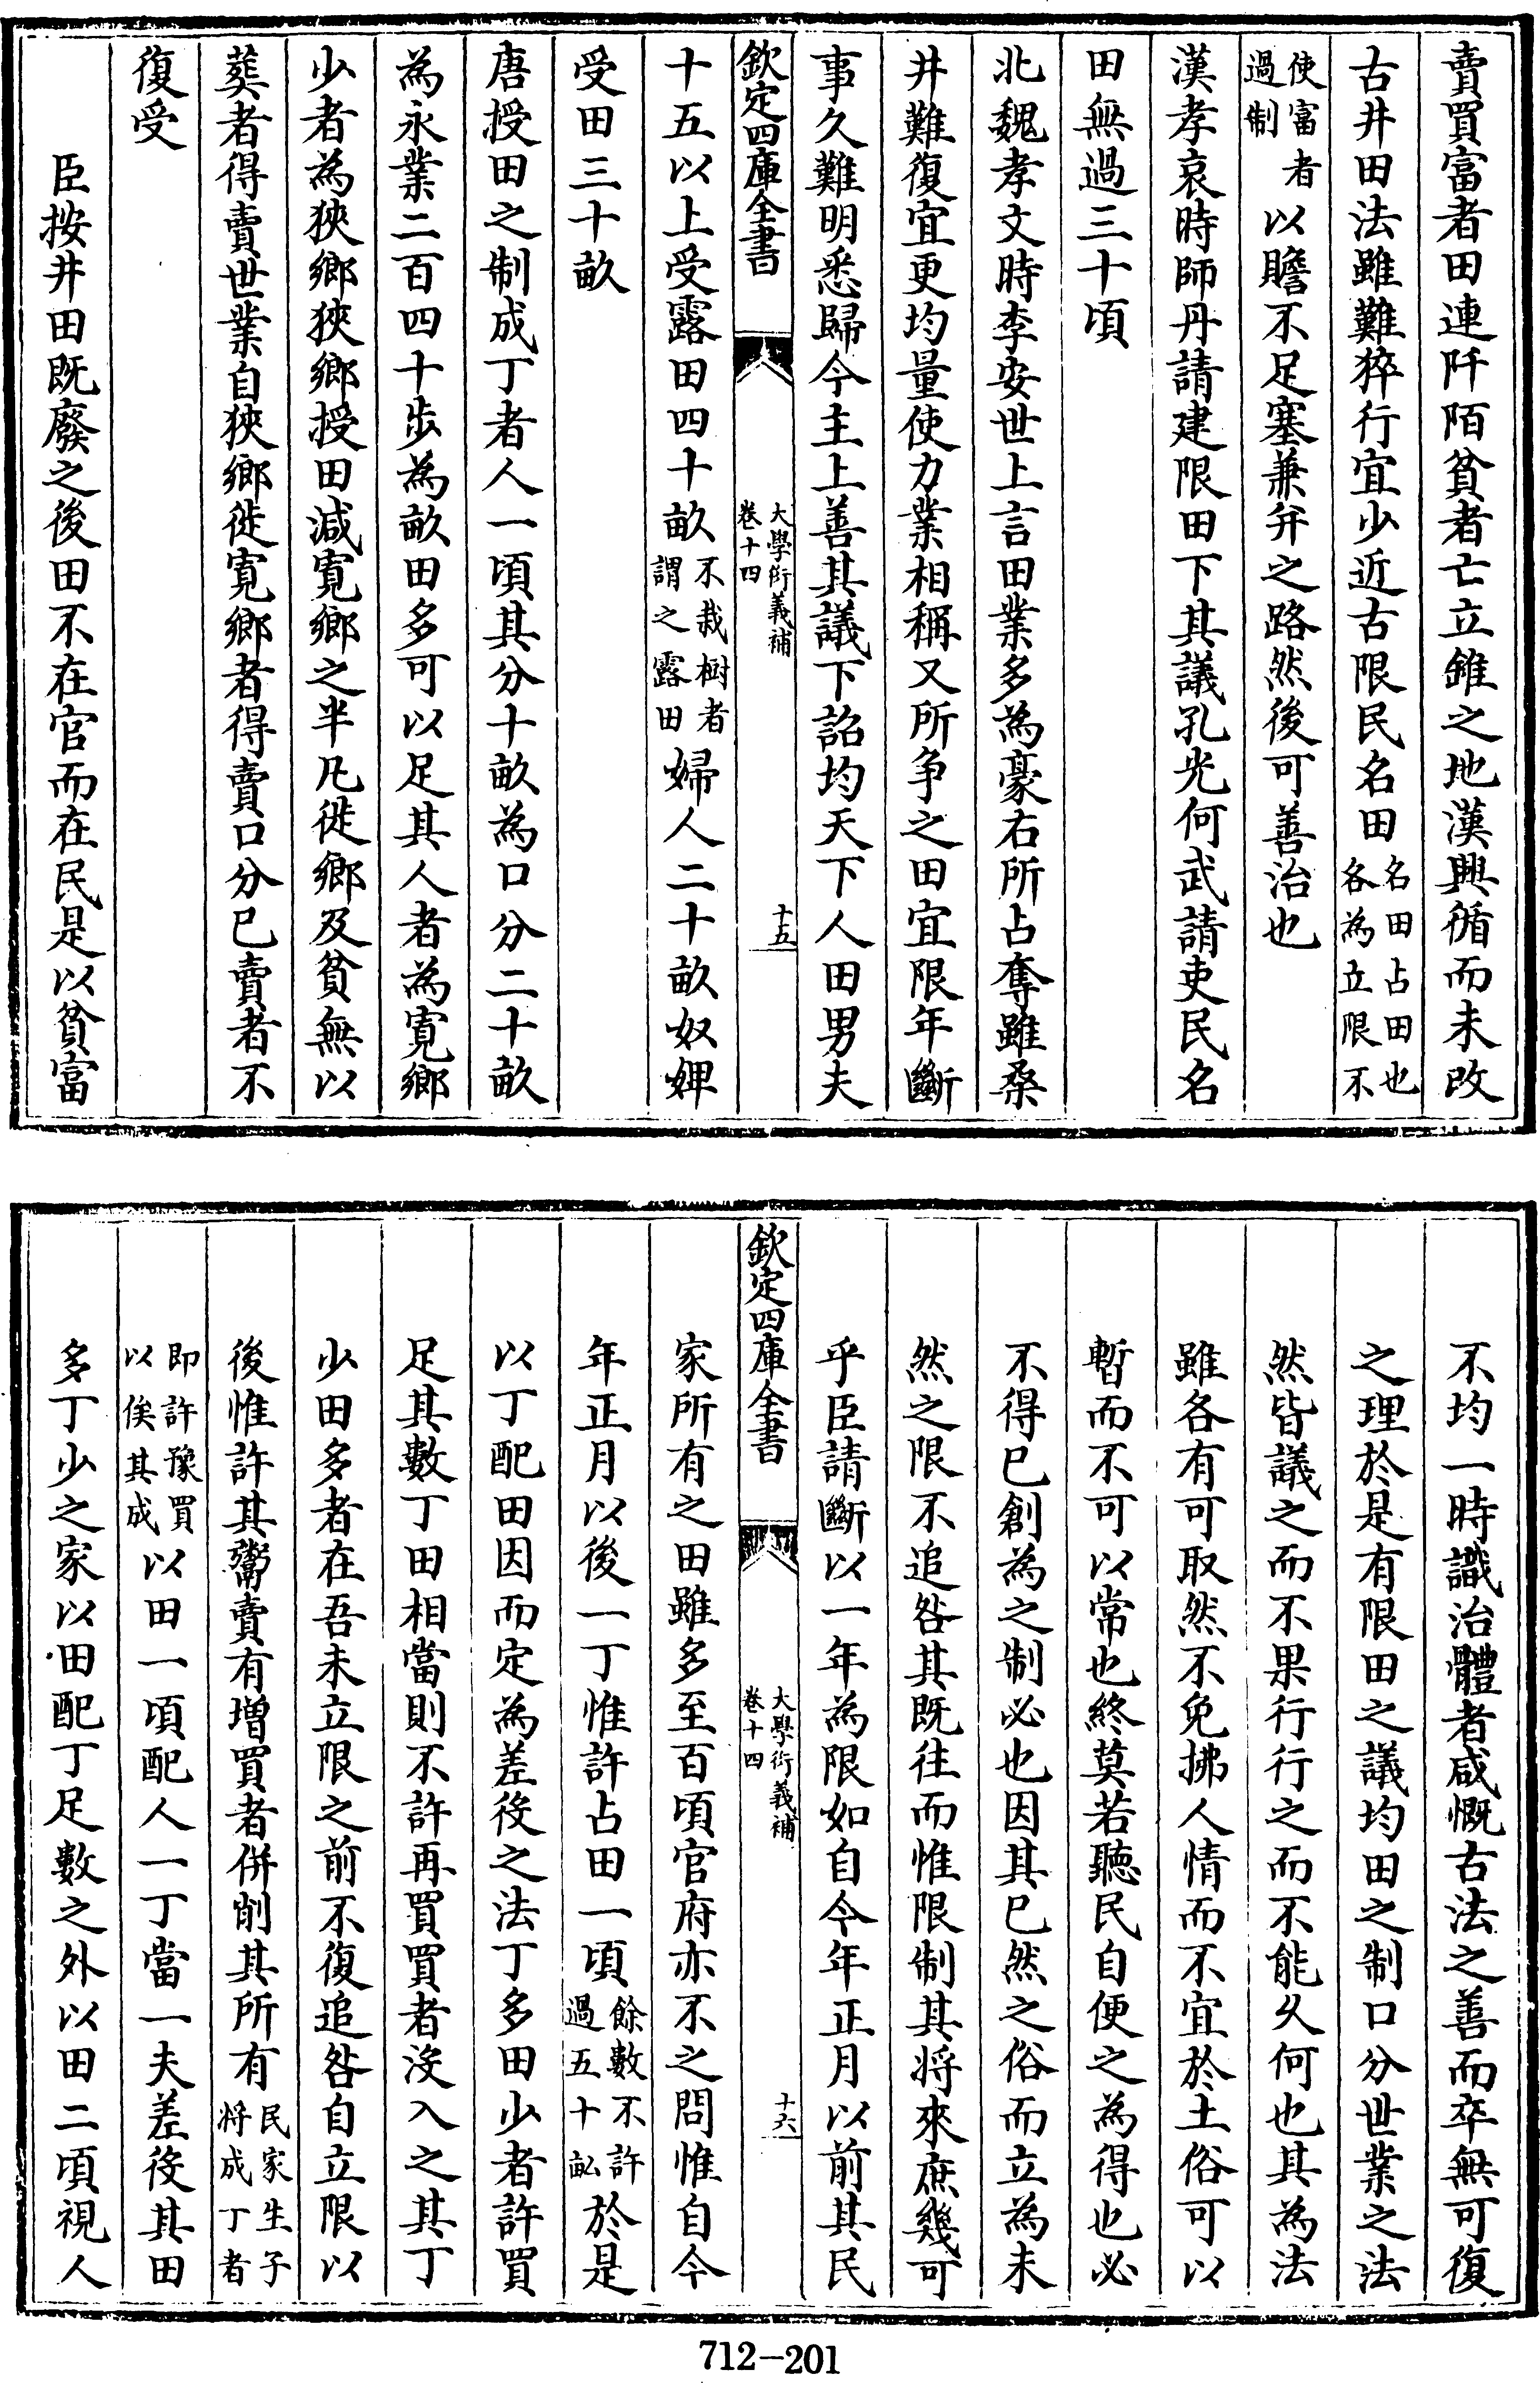 賣買富者田連阡陌貧者亡立錐之地漢興循而未改
古井田法雖難猝行宜少近古限民名田名田占田也各為立限不
使富者過制以贍不足塞兼并之路然後可善治也
漢孝哀時師丹請建限田下其議孔光何武請吏民名
田無過三十頃
北魏孝文時李安世上言田業多為豪右所占奪雖桑
井難復宜更均量使力業相稱又所爭之田宜限年斷
事久難明悉歸今主上善其議下詔均天下人田男夫
欽定四庫全書
大學衍義補
卷十四
十五
十五以上受露田四十畝不栽樹者謂之露田婦人二十畝奴婢
受田三十畝
唐授田之制成丁者人一頃其分十畝為口分二十畝
為永業二百四十步為畝田多可以足其人者為寛鄉
少者為狹鄉狹鄉授田減寛鄉之半凡徙鄉及貧無以
葬者得賣世業自狹鄉徙寛鄉者得賣口分已賣者不
復受
臣按井田既廢之後田不在官而在民是以貧富
不均一時識治體者咸慨古法之善而卒無可復
之理於是有限田之議均田之制口分世業之法
然皆議之而不果行行之而不能久何也其為法
雖各有可取然不免拂人情而不宜於土俗可以
暫而不可以常也終莫若聽民自便之為得也必
不得已創為之制必也因其已然之俗而立為未
然之限不追咎其既往而惟限制其將來庶幾可
乎臣請斷以一年為限如自今年正月以前其民
欽定四庫全書
大學衍義補
卷十四
十六
家所有之田雖多至百頃官府亦不之問惟自今
年正月以後一丁惟許占田一頃餘數不許過五十畝於是
以丁配田因而定為差役之法丁多田少者許買
足其數丁田相當則不許再買買者沒入之其丁
少田多者在吾未立限之前不復追咎自立限以
後惟許其鬻賣有增買者併削其所有民家生子將成丁者
即許豫買以俟其成以田一頃配人一丁當一夫差役其田
多丁少之家以田配丁足數之外以田二頃視人
712-201